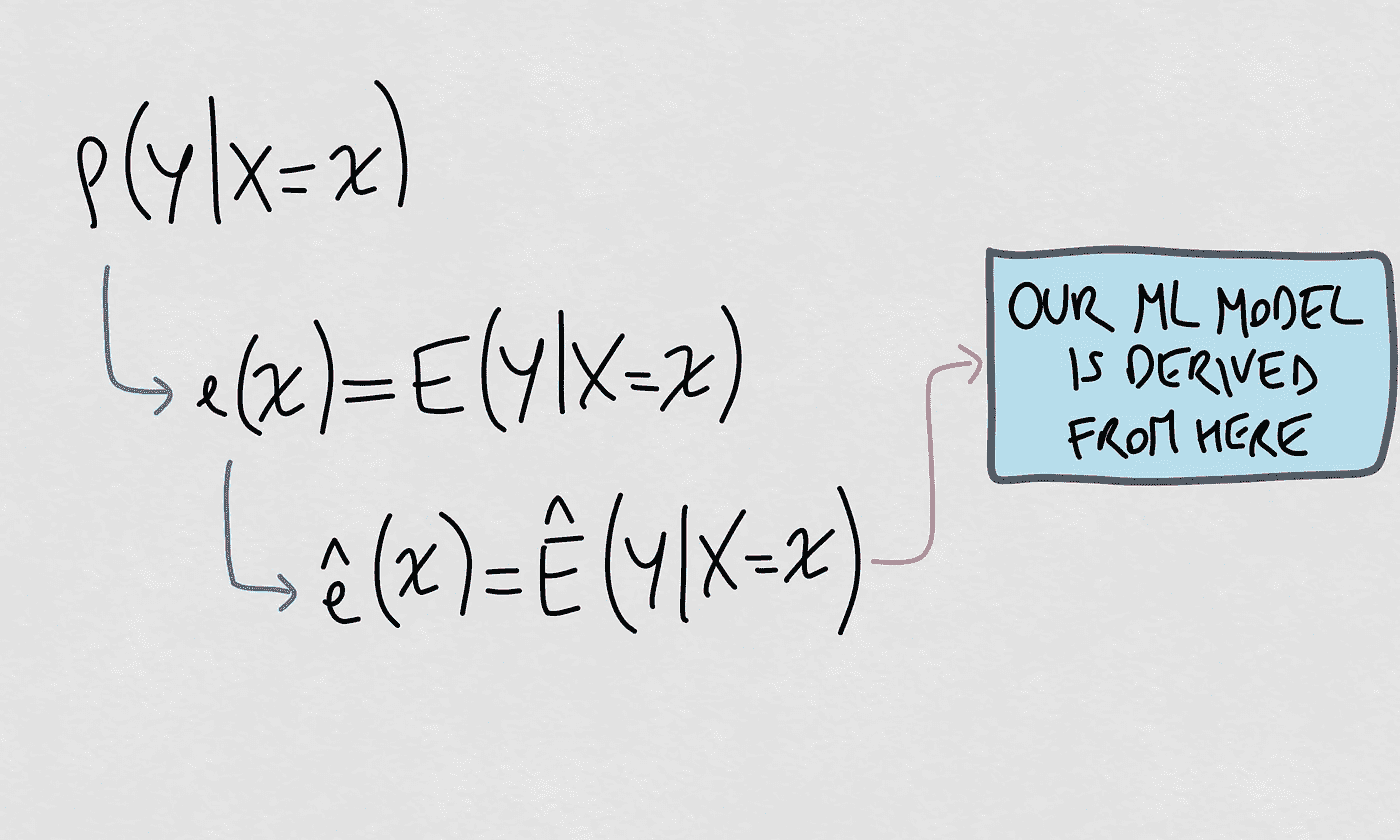 P(Y|X=x)
e(x)=E(Y|X=x)
ê(x)=Ê(Y|X=x)
OUR ML MODEL
IS DERIVED
FROM HERE